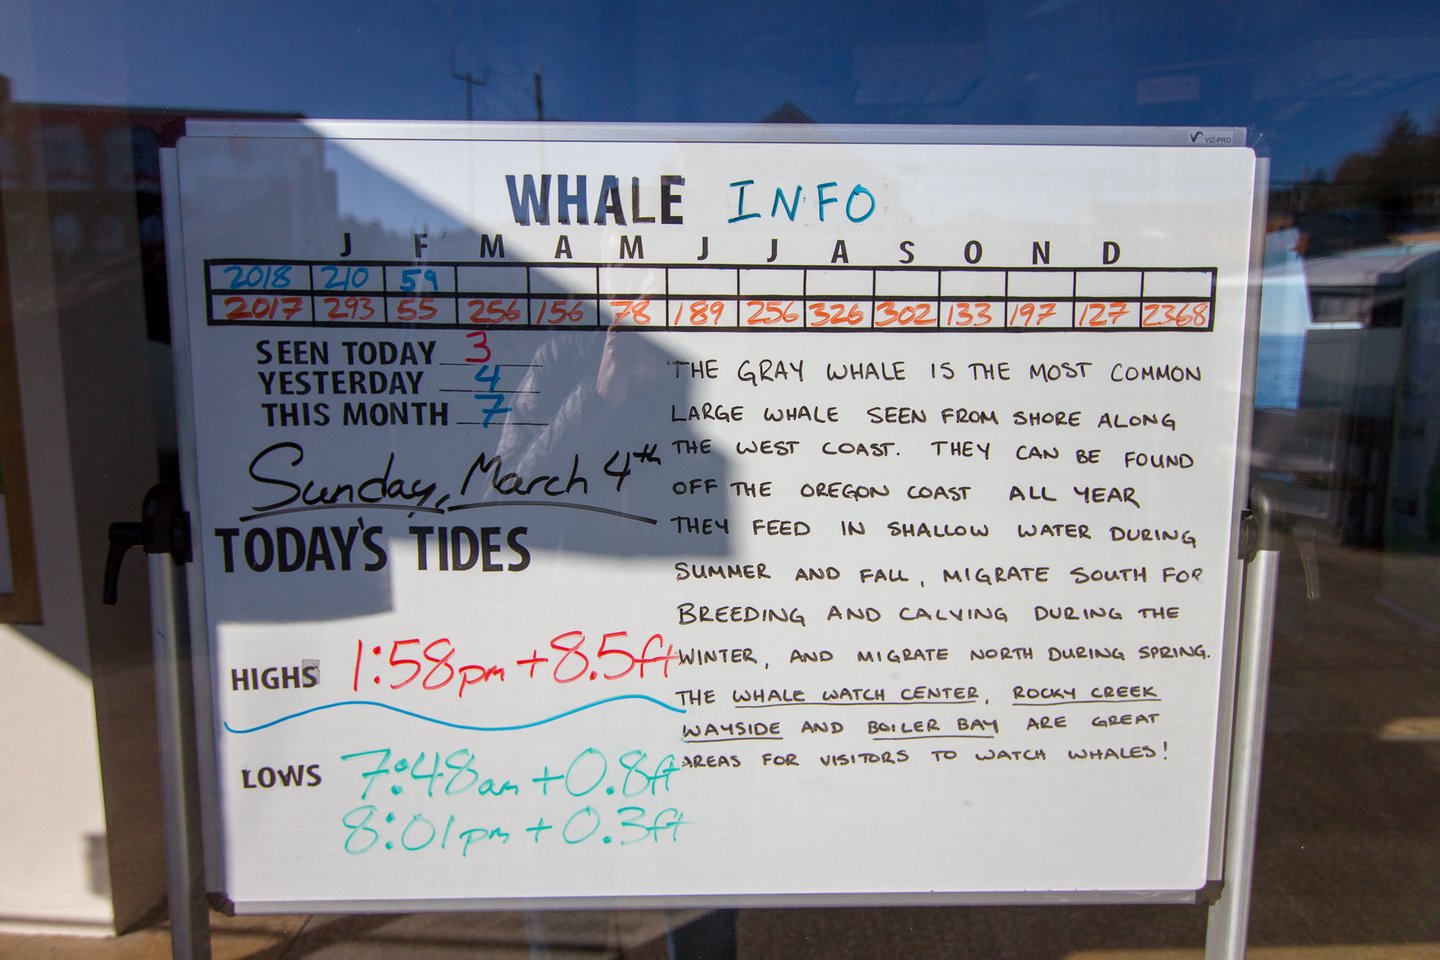 VIZ-PRO
WHALE INFO
J F M A M J J A S O N D
2018 210 59
2017 293 55 256 156 78 189 256 326 302 133 197 127 2368
SEEN TODAY 3
YESTERDAY 4
THIS MONTH 7
Sunday, March 4th
TODAY'S TIDES
HIGHS 1:58pm +8.5ft
LOWS 7:48am +0.8ft
8:01pm +0.3ft
THE GRAY WHALE IS THE MOST COMMON
LARGE WHALE SEEN FROM SHORE ALONG
THE WEST COAST. THEY CAN BE FOUND
OFF THE OREGON COAST ALL YEAR
THEY FEED IN SHALLOW WATER DURING
SUMMER AND FALL, MIGRATE SOUTH FOR
BREEDING AND CALVING DURING THE
WINTER, AND MIGRATE NORTH DURING SPRING.
THE WHALE WATCH CENTER, ROCKY CREEK
WAYSIDE AND BOILER BAY ARE GREAT
AREAS FOR VISITORS TO WATCH WHALES!